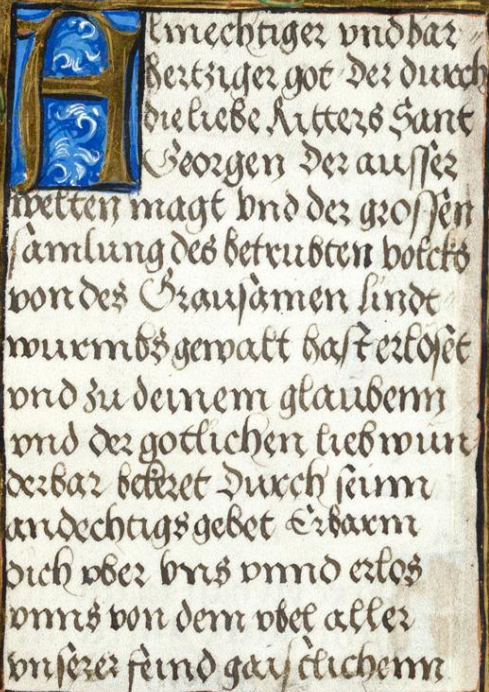 Almechtiger vnd bar
hertziger got der durch
die liebe Ritters Sant
Georgen der ausser
welten magt vnd der grossen
samlung des betrubten volcks
von des Grausamen lindt
wurmbs gewalt hast erloset
vnd zu deinem glaubenn
vnd der gotlichen lieb wun
derbar bekeret Durch seinn
andechtigs gebet Erbarm
dich vber vns vnnd erlos
vnns von dem vbel aller
vnserer feind gaistlichenn